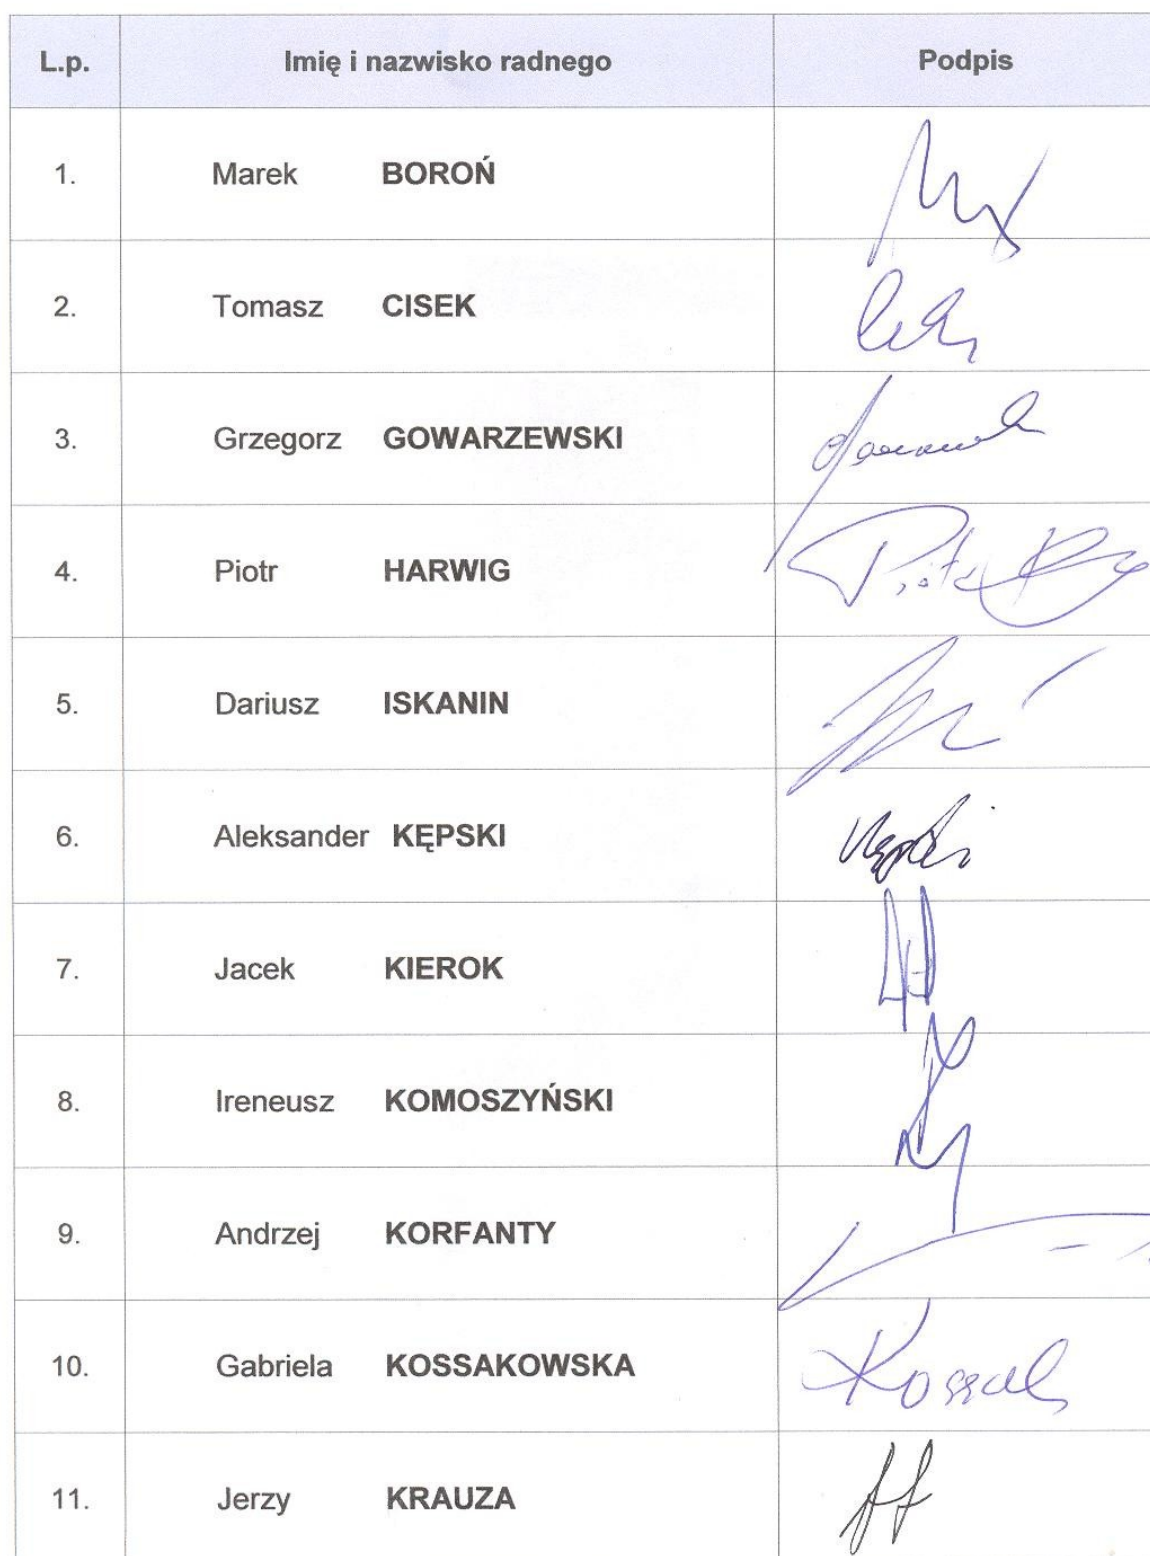 L.p. Imię i nazwisko radnego Podpis
1. Marek BOROŃ
2. Tomasz CISEK
3. Grzegorz GOWARZEWSKI
4. Piotr HARWIG
5. Dariusz ISKANIN
6. Aleksander KĘPSKI
7. Jacek KIEROK
8. Ireneusz KOMOSZYŃSKI
9. Andrzej KORFANTY
10. Gabriela KOSSAKOWSKA
11. Jerzy KRAUZA